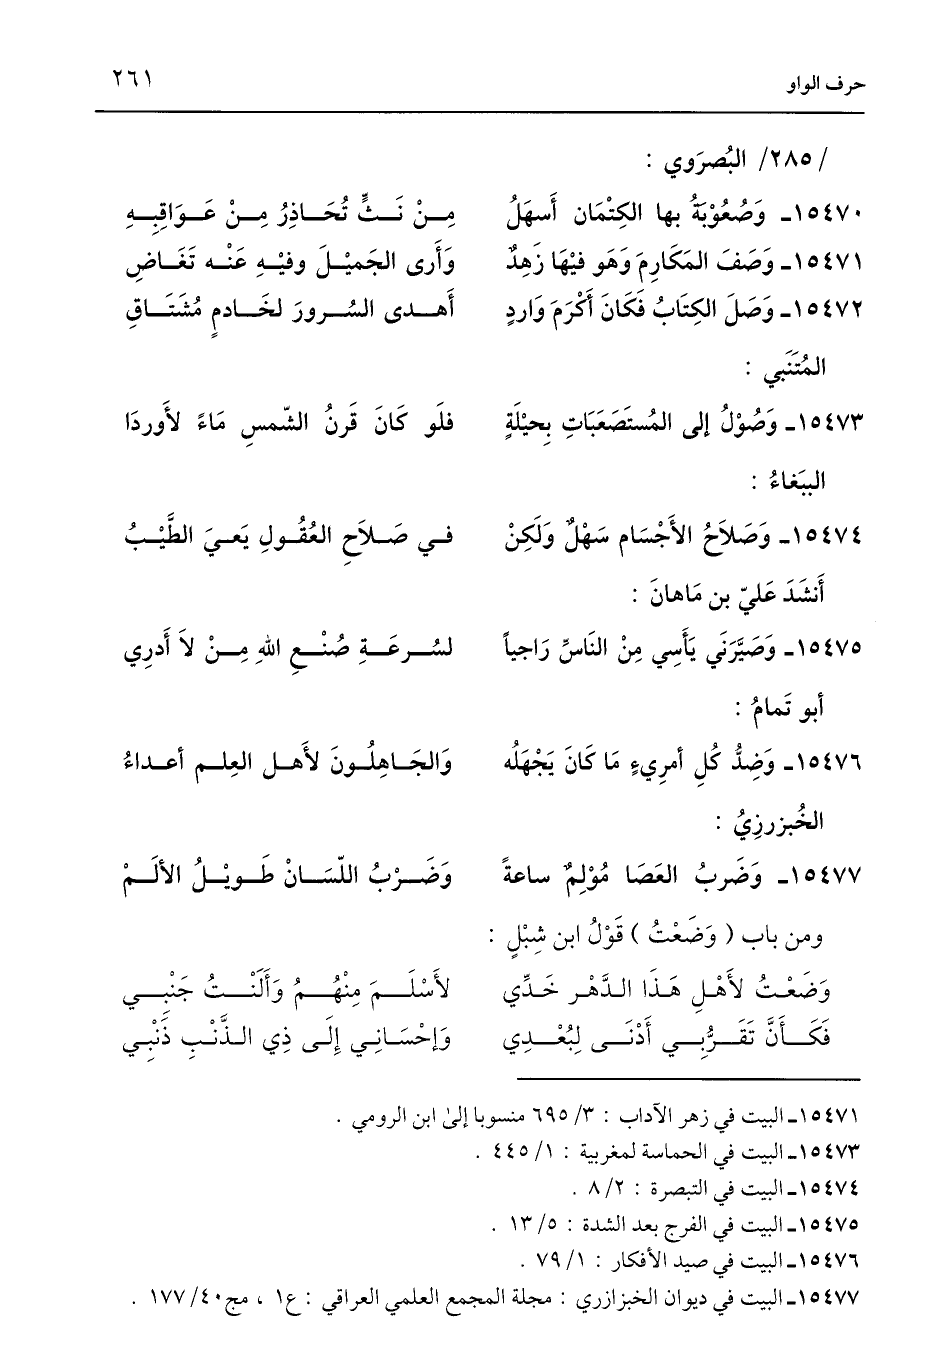 حرف الواو ٢٦١
/ ٢٨٥/ البُصرَوي :
١٥٤٧٠ـ وَصُعُوْبَةُ بها الكِتْمَان أَسهَلُ مِـنْ نَـثٍّ تُحَـاذِرُ مِـنْ عَـوَاقِبِـهِ
١٥٤٧١ـ وَصَفَ المَكَارِمَ وَهَو فيْهَا زَهِدٌ وَأَرى الجَميْـلَ وفيْـهِ عَنْـه تَغَـاضِ
١٥٤٧٢ـ وَصَلَ الكِتَابُ فَكَانَ أَكْرَمَ وَاردٍ أَهـدى السُّـرورَ لخَـادمٍ مُشتَـاقِ
المُتَنَبي :
١٥٤٧٣ـ وَصُوْلُ إلى المُستَصَعَبَاتِ بِحيْلَةٍ فلَو كَانَ قَرنُ الشّمسِ مَاءً لأَوردَا
الببَغاءُ :
١٥٤٧٤ـ وَصَلاَحُ الأَجْسَام سَهْلٌ وَلَكِنْ فـي صَـلاَحِ العُقُـولِ يَعـيَ الطَّيْـبُ
أَنشَدَ عَليّ بن مَاهانَ :
١٥٤٧٥ـ وَصَيَّرَنَي يَأسِي مِنْ النَاسِّ رَاجياً لسُـرعَـةِ صُنْـعِ اللهِ مِـنْ لاَ أَدرِي
أبو تَمامُ :
١٥٤٧٦ـ وَضِدُّ كُلِ أمرِيءٍ مَا كَانَ يَجْهَلُه وَالجَـاهِلُـونَ لأَهـل العِلـم أعـداءُ
الخُبزرزِيُ :
١٥٤٧٧ـ وَضَربُ العَصَا مُوْلِمٌ ساعةً وَضَـرْبُ اللّسَـانْ طَـويْـلُ الألَـمْ
ومن باب ( وَضَعْتُ ) قَوْلُ ابن شِبْلٍ :
وَضَعْـتُ لأَهْـلِ هَـذَا الـدَّهْـر خَـدِّي لأَسْلَـمَ مِنْهُـمُ وَأَلَنْـتُ جَنْبِـي
فَكَـأنَّ تَقَـرُّبِـي أَدْنَـى لِبُعْـدِي وَإحْسَـانِـي إِلَـى ذِي الـذَّنْـبِ ذَنْبِي
١٥٤٧١ـ البيت في زهر الآداب : ٣/ ٦٩٥ منسوبا إلىٰ ابن الرومي .
١٥٤٧٣ـ البيت في الحماسة لمغربية : ١/ ٤٤٥ .
١٥٤٧٤ـ البيت في التبصرة : ٢/ ٨ .
١٥٤٧٥ـ البيت في الفرج بعد الشدة : ٥/ ١٣ .
١٥٤٧٦ـ البيت في صيد الأفكار : ١/ ٧٩ .
١٥٤٧٧ـ البيت في ديوان الخبزازري : مجلة المجمع العلمي العراقي : ع١ ، مج٤٠/ ١٧٧ .